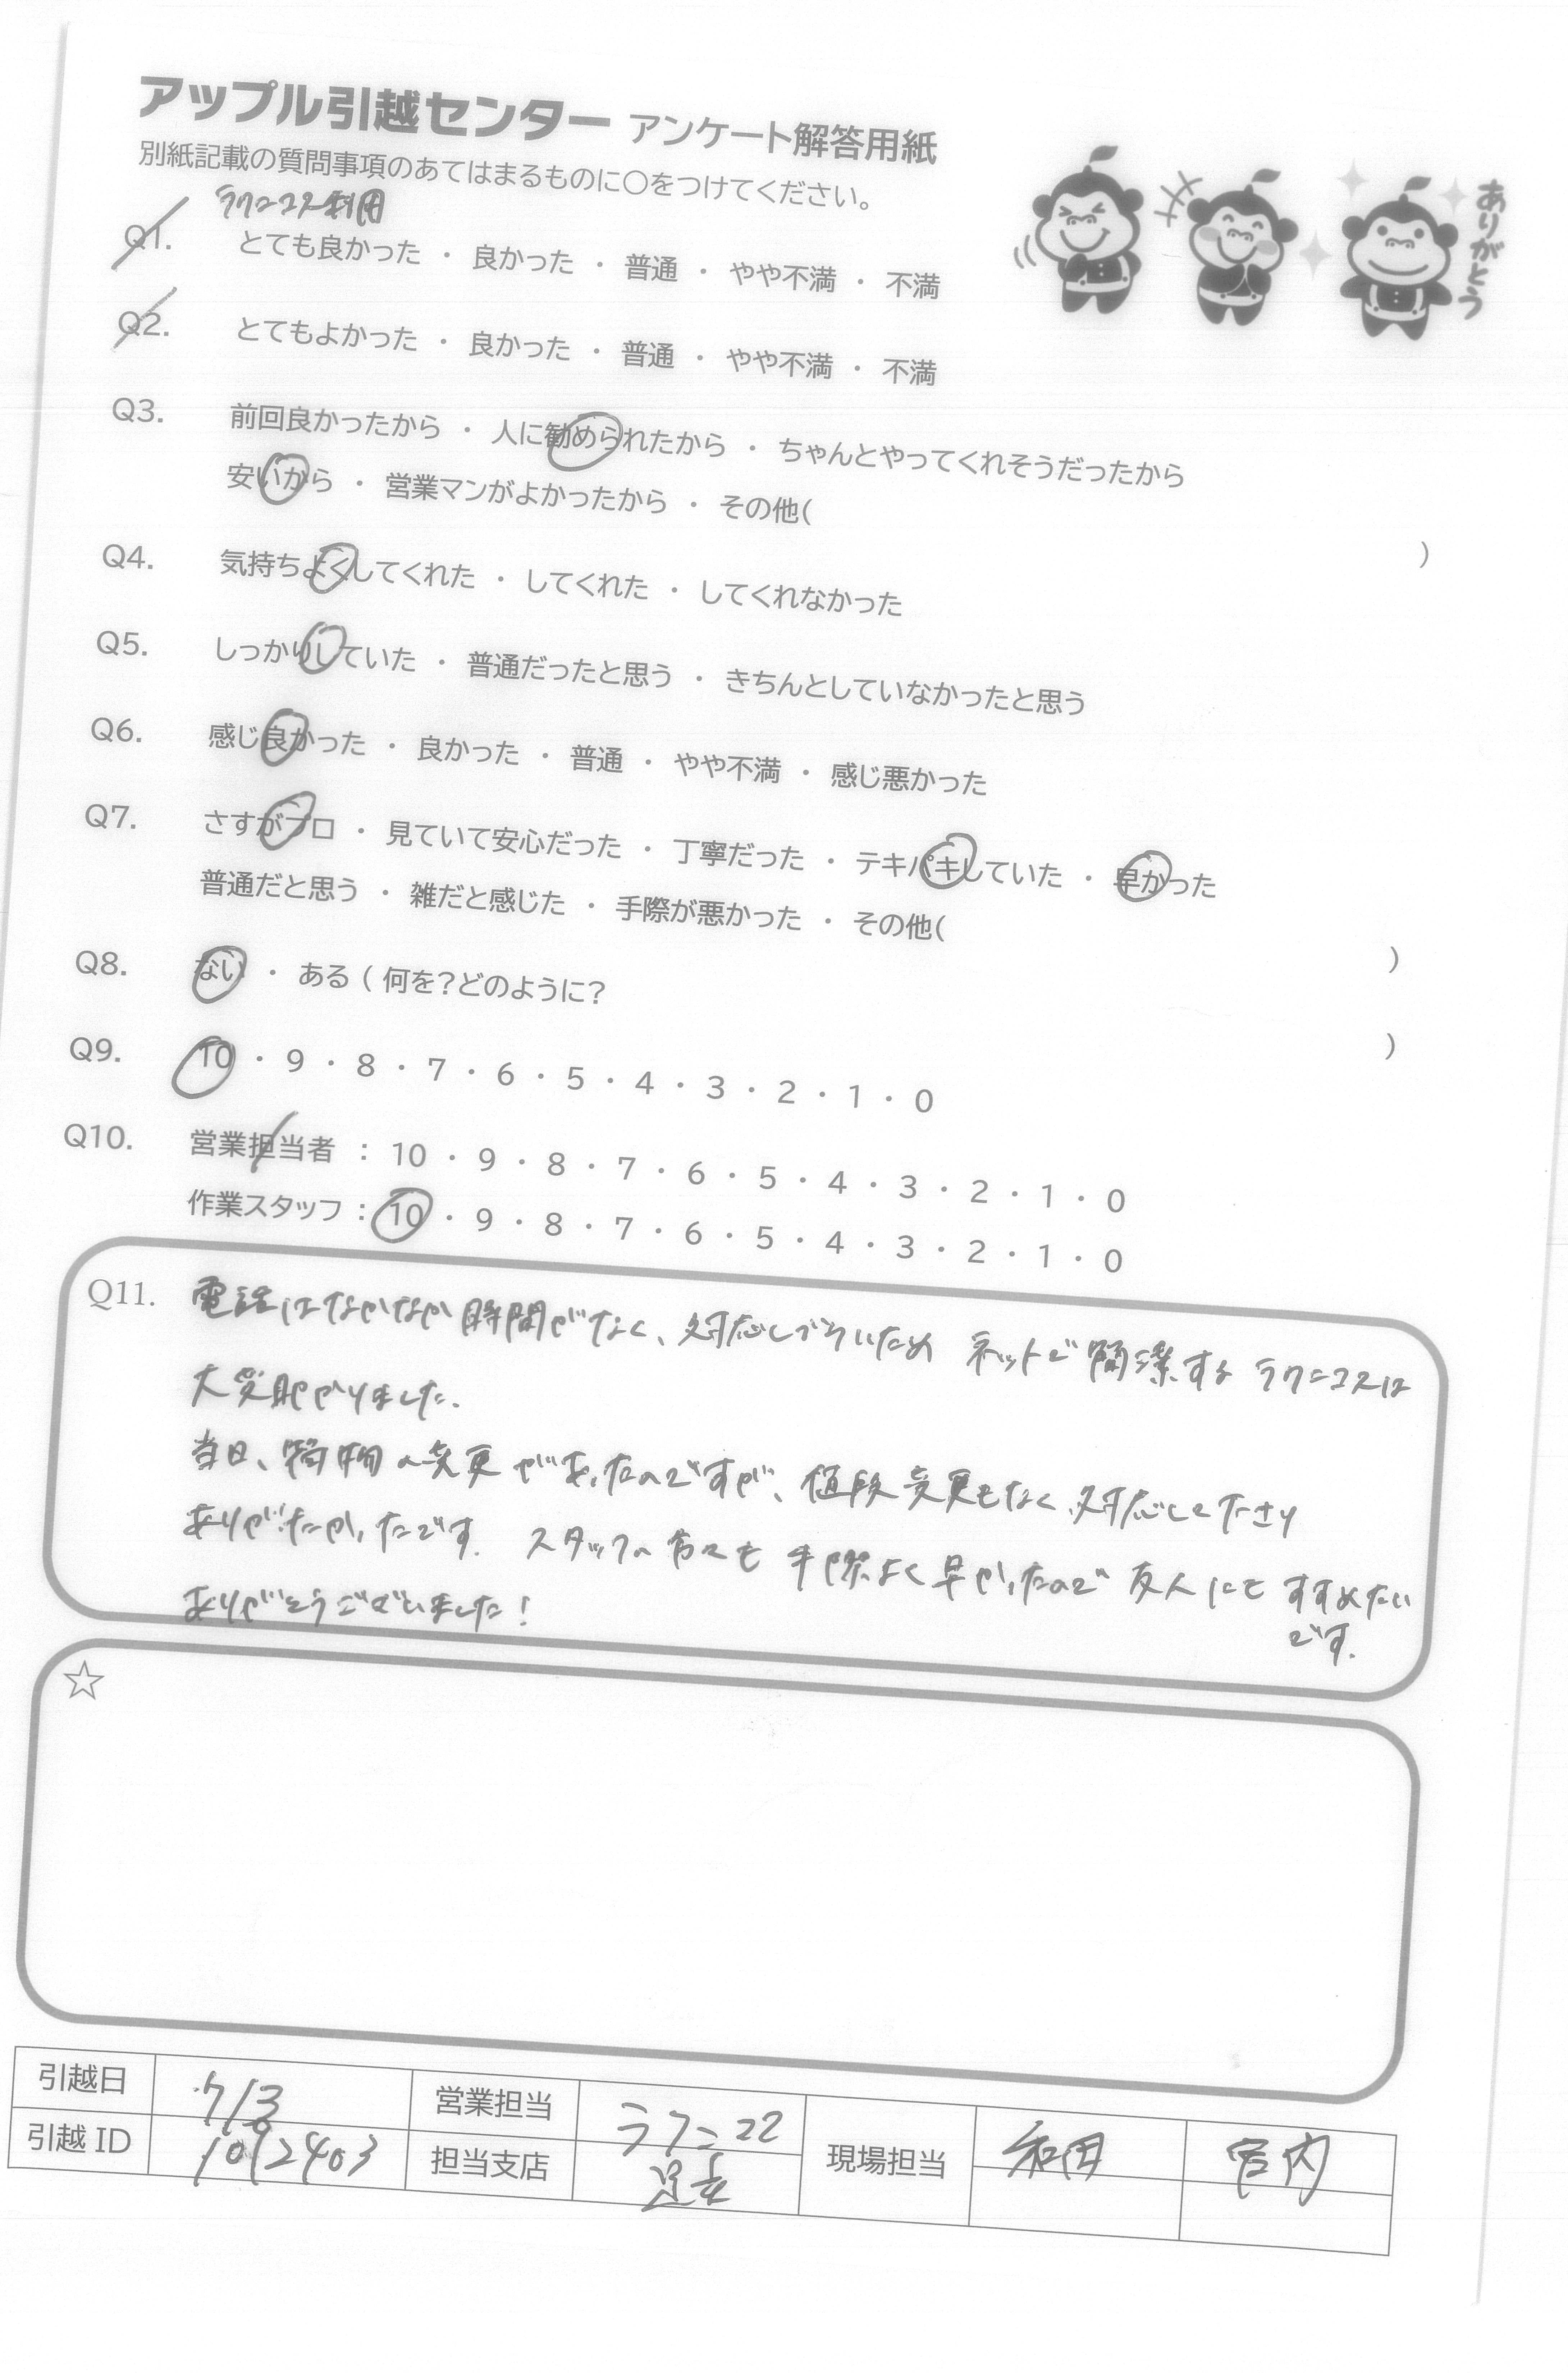 アップル引越センター アンケート解答用紙
別紙記載の質問事項のあてはまるものに〇をつけてください。
ありがとう
ラクニコス利用
Q1. とても良かった ・ 良かった ・ 普通 ・ やや不満 ・ 不満
Q2. とてもよかった ・ 良かった ・ 普通 ・ やや不満 ・ 不満
Q3. 前回良かったから ・ 人に勧められたから ・ ちゃんとやってくれそうだったから
安いから ・ 営業マンがよかったから ・ その他( )
Q4. 気持ちよくしてくれた ・ してくれた ・ してくれなかった
Q5. しっかりしていた ・ 普通だったと思う ・ きちんとしていなかったと思う
Q6. 感じ良かった ・ 良かった ・ 普通 ・ やや不満 ・ 感じ悪かった
Q7. さすがプロ ・ 見ていて安心だった ・ 丁寧だった ・ テキパキしていた ・ 早かった
普通だと思う ・ 雑だと感じた ・ 手際が悪かった ・ その他( )
Q8. ない ・ ある ( 何を?どのように? )
Q9. 10 ・ 9 ・ 8 ・ 7 ・ 6 ・ 5 ・ 4 ・ 3 ・ 2 ・ 1 ・ 0
Q10. 営業担当者 : 10 ・ 9 ・ 8 ・ 7 ・ 6 ・ 5 ・ 4 ・ 3 ・ 2 ・ 1 ・ 0
作業スタッフ : 10 ・ 9 ・ 8 ・ 7 ・ 6 ・ 5 ・ 4 ・ 3 ・ 2 ・ 1 ・ 0
Q11. 電話はなかなか時間がなく、対応しづらいため ネットで簡潔する ラクニコスは
大変助かりました。
当日、荷物の変更があったのですが、値段変更もなく対応して下さり
ありがたかったです。 スタッフの方々も 手際よく早かったので 友人にも すすめたい
です。
ありがとうございました!
☆
引越日 7/3 営業担当 ラクニコス 現場担当 和田 宮内
引越 ID 1092403 担当支店